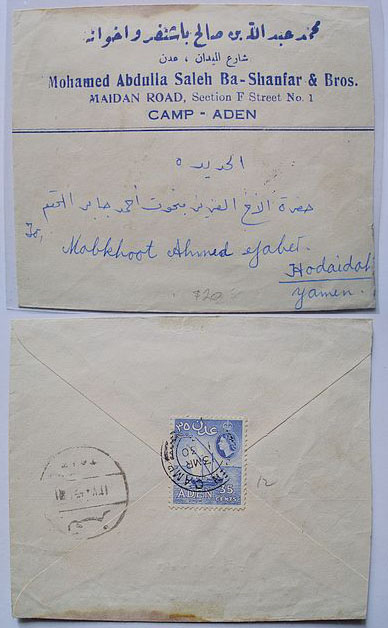 محمد عبد الله بن صالح باشنفر واخوانه
شارع الميدان ، عدن
Mohamed Abdulla Saleh Ba-Shanfar & Bros.
MAIDAN ROAD, Section F Street No. 1
CAMP - ADEN
الحديده
حضرة الأخ العزيز مبخوت أحمد جابر المحترم
To,
Mobkhoot Ahmed Jaber.
Hodaidah
Yamen.
$20
عدن ٣٥
ADEN 35
CENTS
N CAMP
3 MR
30
12